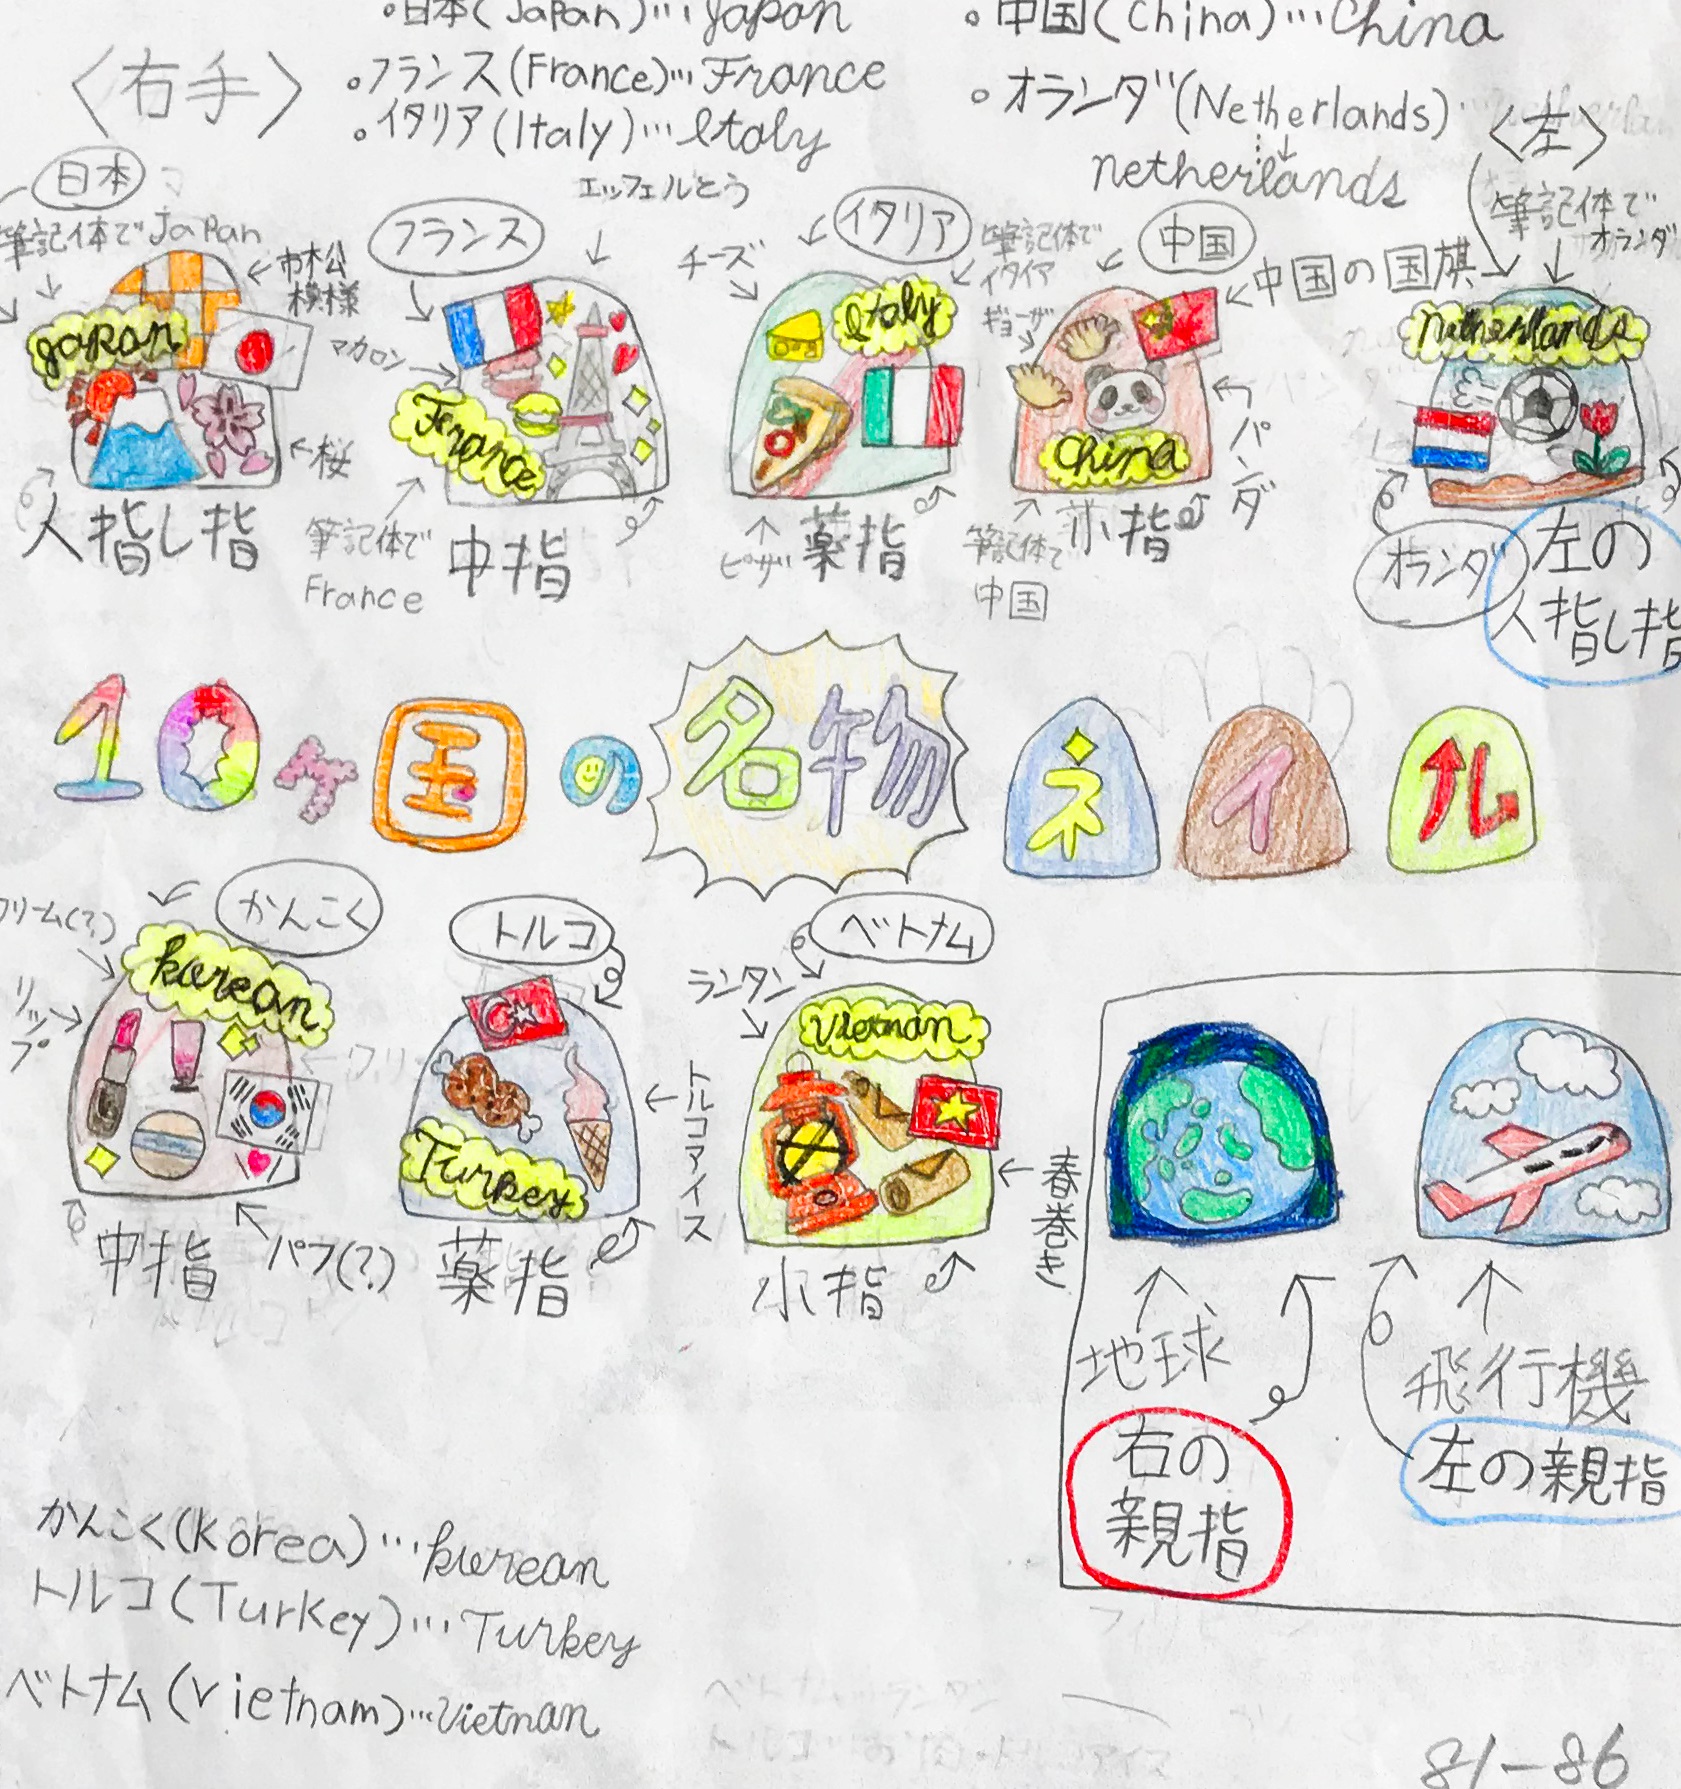 。日本(Japan)…Japan
。中国(China)…China
〈右手〉
。フランス(France)…France
。イタリア(Italy)…Italy
。オランダ(Netherlands)…
netherlands
〈左〉
エッフェルとう
日本
筆記体でJapan
市松
模様
Japan
桜
人指し指
フランス
マカロン
France
筆記体で
France
中指
イタリア
チーズ
筆記体で
イタイア
Italy
ピザ
薬指
中国
中国の国旗
ギョーザ
パンダ
China
筆記体で
中国
小指
筆記体で
オランダ
Netherlands
オランダ
左の
人指し指
10ヶ国の名物ネイル
かんこく
クリーム(?)
リップ
kurean
中指
パフ(?)
トルコ
トルコアイス
Turkey
薬指
ベトナム
ランタン
Vietnan
春巻き
小指
地球
右の
親指
飛行機
左の親指
かんこく(Korea)…kurean
トルコ(Turkey)…Turkey
ベトナム(Vietnam)…Vietnan
81-86